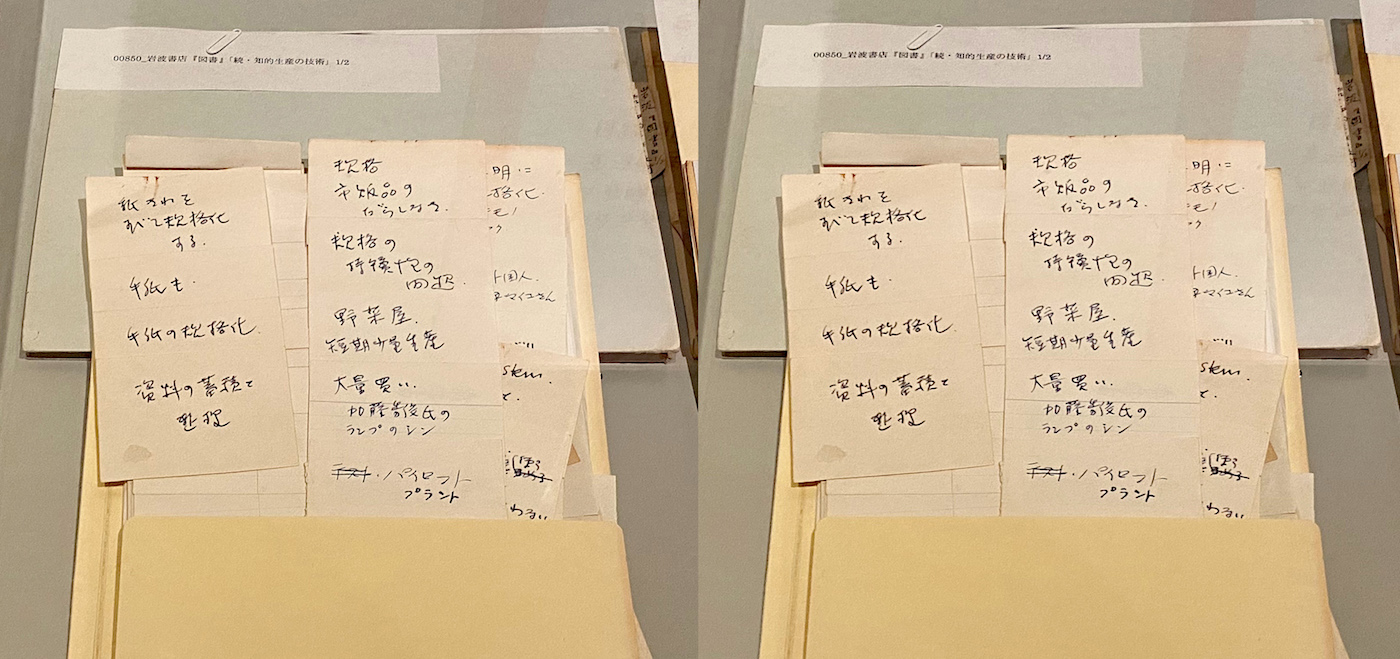 00850_岩波書店『図書』「続・知的生産の技術」1/2
紙きれを
すべて規格化
する.
手紙も.
手紙の規格化.
資料の蓄積と
規格
市販品の
だらしなさ.
規格の
持續性の
問題.
野菜屋.
短期少量生産
大量買い.
加藤秀俊氏の
ランプのシン
テスト・パイロット
プラント
明に
格化.
モノ
国人.
マイコさん
stem.
わるい
00850_岩波書店『図書』「続・知的生産の技術」1/2
紙きれを
すべて規格化
する.
手紙も.
手紙の規格化.
資料の蓄積と
規格
市販品の
だらしなさ.
規格の
持續性の
問題.
野菜屋.
短期少量生産
大量買い.
加藤秀俊氏の
ランプのシン
テスト・パイロット
プラント
明に
格化.
モノ
国人.
マイコさん
stem.
わるい